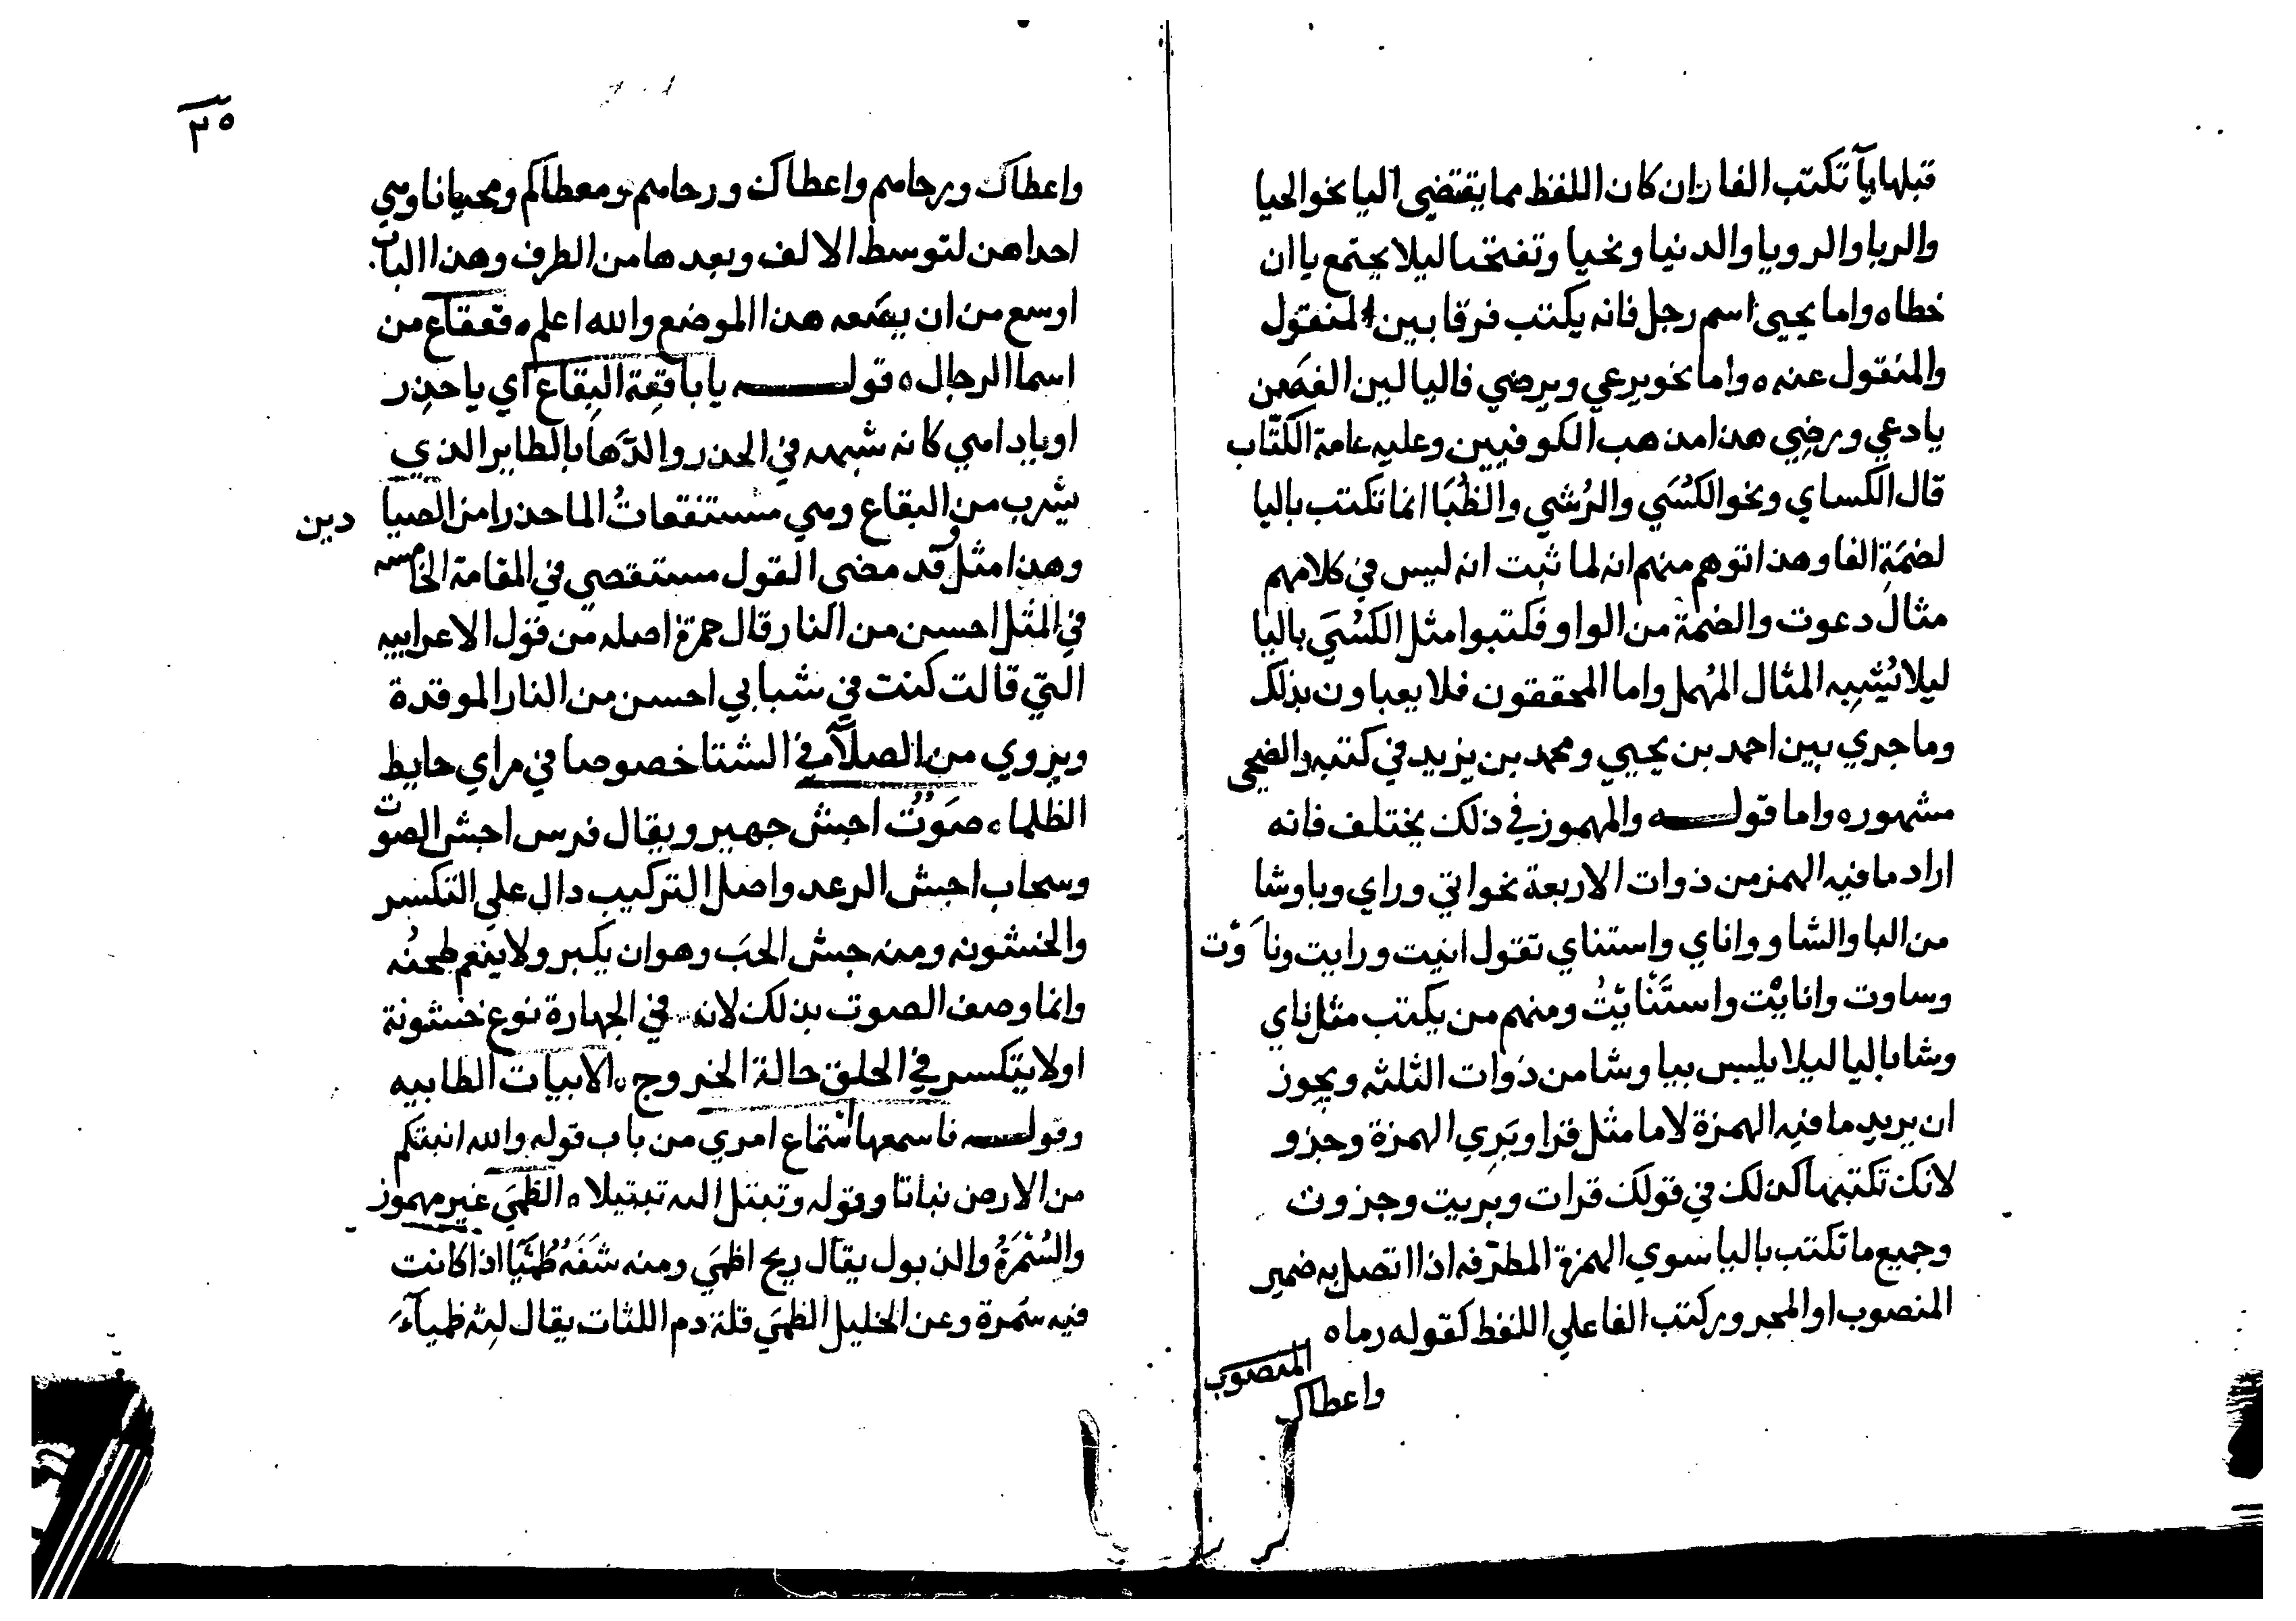 قبلها يآ تكتب الفا وان كان اللفظ مما يقتضي اليا نحو الحيا
والريا والرويا والدنيا ونحيا وتفتحا ليلا يجتمع ياان
خطاه واما يحيى اسم رجل فانه يكتب فرقا بين المنقول
والمنقول عنه ٥ واما نحو يرعي ويرضي فاليا لين الفه عن
يا دعي ورضي هذا مذهب الكوفيين وعليه عامة الكتّاب
قال الكساي ونحو الكُسَي والرُشي والظُبَا انما تكتب باليا
لضمَةِ الفا وهذا توهم منهم انه لما ثبت انه ليس في كلامهم
مثال دعوت والضمة من الواو فكتبوا مثل الكُسَي باليا
ليلا يُشبِه المثال المُهمل واما المحققون فلا يعباون بذلك
وما جري بين احمد بن يحيي ومحمد بن يزيد في كتبه والضحى
مشهوره واما قولـــه والمهموز في ذلك يختلف فانه
اراد ما فيه الهمز من ذوات الاربعة نحو اتي وراي وباو شا
من البا والشاو واناي واستناي تقول انيت ورايت وناوَت
وساوت وانايْت واستَنْايْتُ ومنهم من يكتب مثل ناي
وشا باليا ليلا يلبس بيا وشا من ذوات الثلثه ويجوز
ان يريد ما فيه الهمزة لاما مثل قرا وبَرِي الهمزة وجزو
لانك تكتبها كذلك في قولك قرات وبريت وجزوت
وجميع ما تكتب باليا سوي الهمزة المطرّفه اذا اتصل به ضمير
المنصوب او المجرور كتب الفا علي اللفظ كقوله رماه
المنصوب
واعطاك
٢٥
واعطاك ورحاهم واعطاك ورحاهم ومعطاكم ومحيانا وهي
احداهن لتوسط الالف وبعدها من الطرف وهذا الباب
اوسع من ان يضعه هذا الموضع والله اعلم ٥ قعقاع من
اسما الرجال ٥ قولـــه يا باقِعة البِقاع اي يا حذِر
او يا داهي كانه شبهه في الحذر والدَّها بالطاير الذي
يشرب من البقاع وهي مستنقعاتُ الما حذرا من الصيا
دين
وهذا مثل وقد مضى القول مستقصي في المقامة الخامسه
في المثل احسن من النار قال حمزة اصله من قول الاعرابيه
التي قالت كنت في شبابي احسن من النار الموقدة
ويروي من الصلآ في الشتا خصوصا في مراي حابط
الظلماء ٥ صَوْتُ اجش جهير ويقال فرس اجش الصوت
وسحاب اجش الرعد واصل التركيب دال علي التكسر
والخشونه ومنه جش الحَب وهو ان يكبر ولا ينعم طحنُه
وانما وصف الصوت بذلك لانه في الجهارة نوع خشونة
اولا يتكسر في الحلق حالة الخروج ٥ الابيات الطابيه
وقولـــه فاسمعها استماع امري من باب قوله والله انبتكم
من الارض نباتا وقوله وتبتل اليه تبتيلا ٥ الظمَي غير مهموز
والسُمْرَةُ والذبول يقال ريح اظمَي ومنه شَفَهُ ظَمْيَا اذا كانت
فيه سَمرة وعن الخليل الظمَي قلة دم اللثات يقال لِثه ظمياءَ